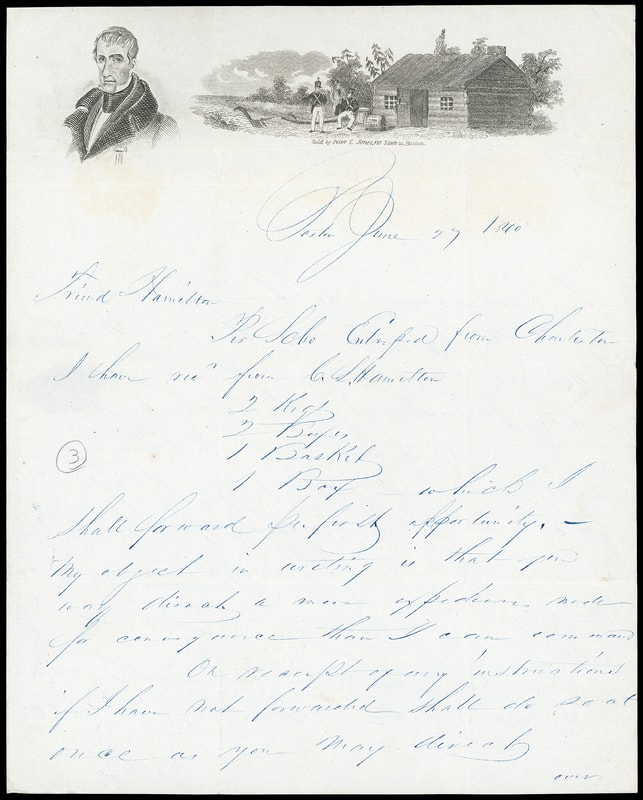 Sold by Peter C. Jones, State st. Boston.
Boston June 27 1840
Friend Hamilton
Per Scho from Charleston
I have recd from C S Hamilton
2 Kegs
2 Boxes
1 Basket
1 Box which I
shall forward per first opportunity. —
My object in writing is that you
may direct a more expedious mode
for conveyance than I can command
On receipt of any instructions
if I have not forwarded shall do so at
once as you may direct
over
3